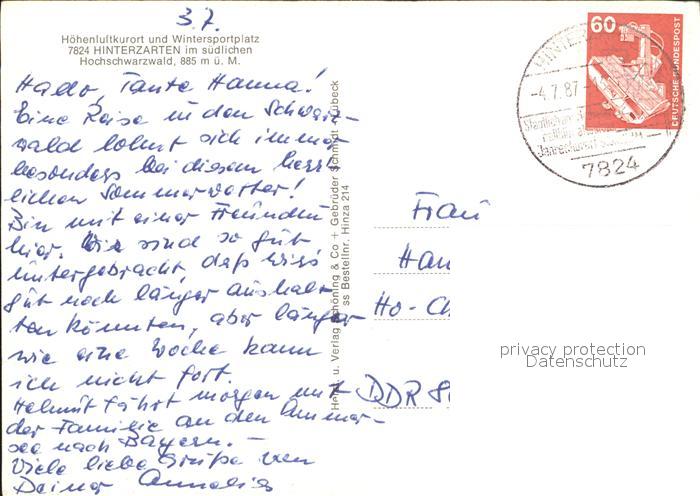 3.7.
Höhenluftkurort und Wintersportplatz
7824 HINTERZARTEN im südlichen
Hochschwarzwald, 885 m ü. M.
Hallo, Tante Hanna!
Eine Reise in den Schwarz-
wald lohnt sich immer
besonders bei diesem herr-
lichen Sommerwetter!
Bin mit einer Freundin
hier. Wir sind so gut
untergebracht, daß wir's
gut noch länger aushal-
ten könnten, aber länger
wie eine Woche kann
ich nicht fort.
Helmut fährt morgen mit
der Familie an den Ammer-
see nach Bayern. –
Viele liebe Grüße von
Deiner Annelies
u. Verlag Schöning & Co + Gebrüder Schmidt Lübeck
Bestellnr. Hinza 214
HINTER
-4.7.87
7824
60
DEUTSCHE BUNDESPOST
Frau
Han
Ho-Ch
DDR 8
privacy protection
Datenschutz